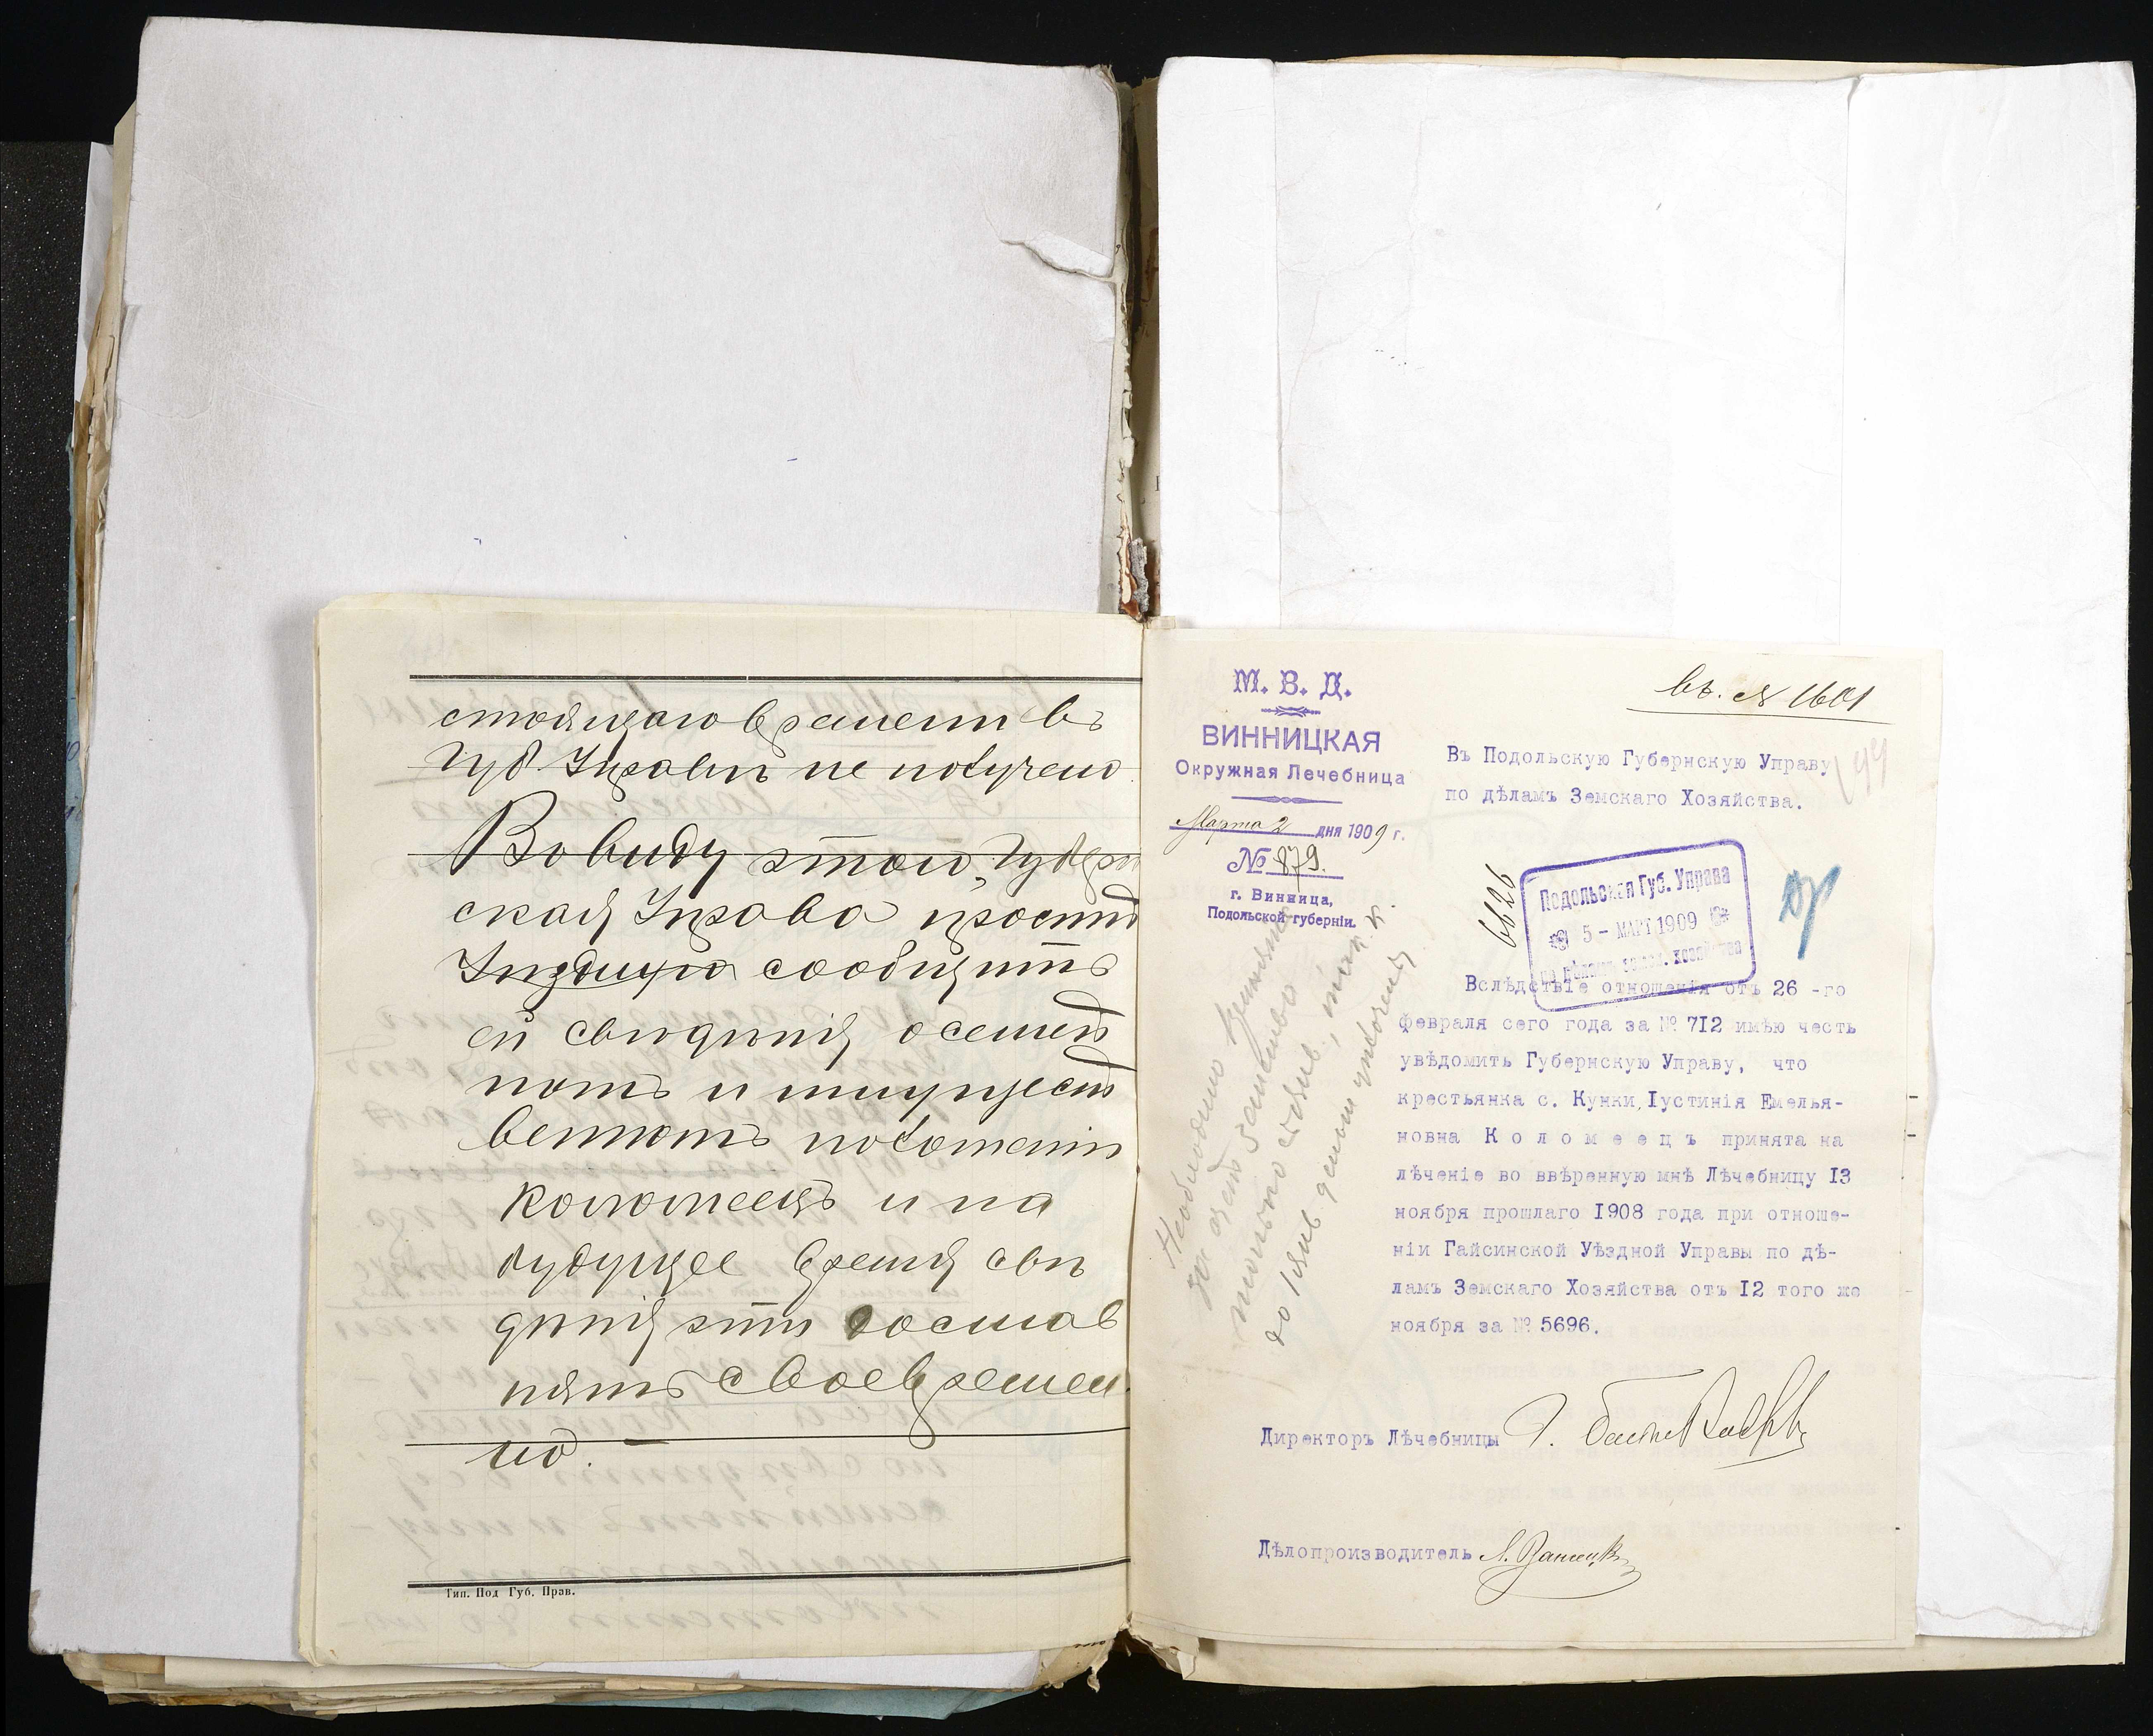 стоящаго времени въ
Губ Управы не получено.
Во виду этого, Губерн
ская Управа проситъ
Управу сообщить
ей свѣдѣнія о семей
номъ и имуществ
венномъ положеніи
Коломеецъ и на
будущее время свѣ
дѣнія эти достав
лять своевремен
но.
Тип. Под Губ. Прав.
М. В. Д.
ВИННИЦКАЯ
Окружная Лечебница
Марта 2 дня 1909 г.
№ 879.
г. Винница,
Подольской губерніи.
вх. № 1601
99
Въ Подольскую Губернскую Управу
по дѣламъ Земскаго Хозяйства.
6626
Подольская Губ. Управа
5 - МАРТ 1909
по дѣламъ земск. хозяйства
Вслѣдствіе отношенія отъ 26 -го
февраля сего года за № 712 имѣю честь
увѣдомить Губернскую Управу, что
крестьянка с. Кунки, Іустинія Емелья-
новна Коломеецъ принята на
лѣченіе во ввѣренную мнѣ Лѣчебницу 13
ноября прошлаго 1908 года при отноше-
ніи Гайсинской Уѣздной Управы по дѣ-
ламъ Земскаго Хозяйства отъ 12 того же
ноября за № 5696.
Необходимо
за счетъ земства
только
до
Директоръ Лѣчебницы
Дѣлопроизводитель